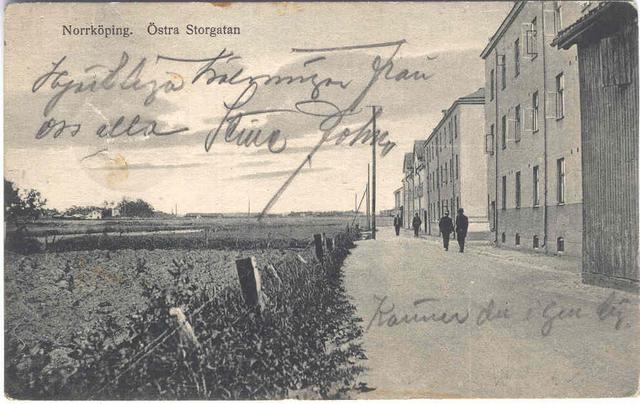 Norrköping. Östra Storgatan
Hjärtliga hälsningar från
oss alla Stina John
Känner du igen